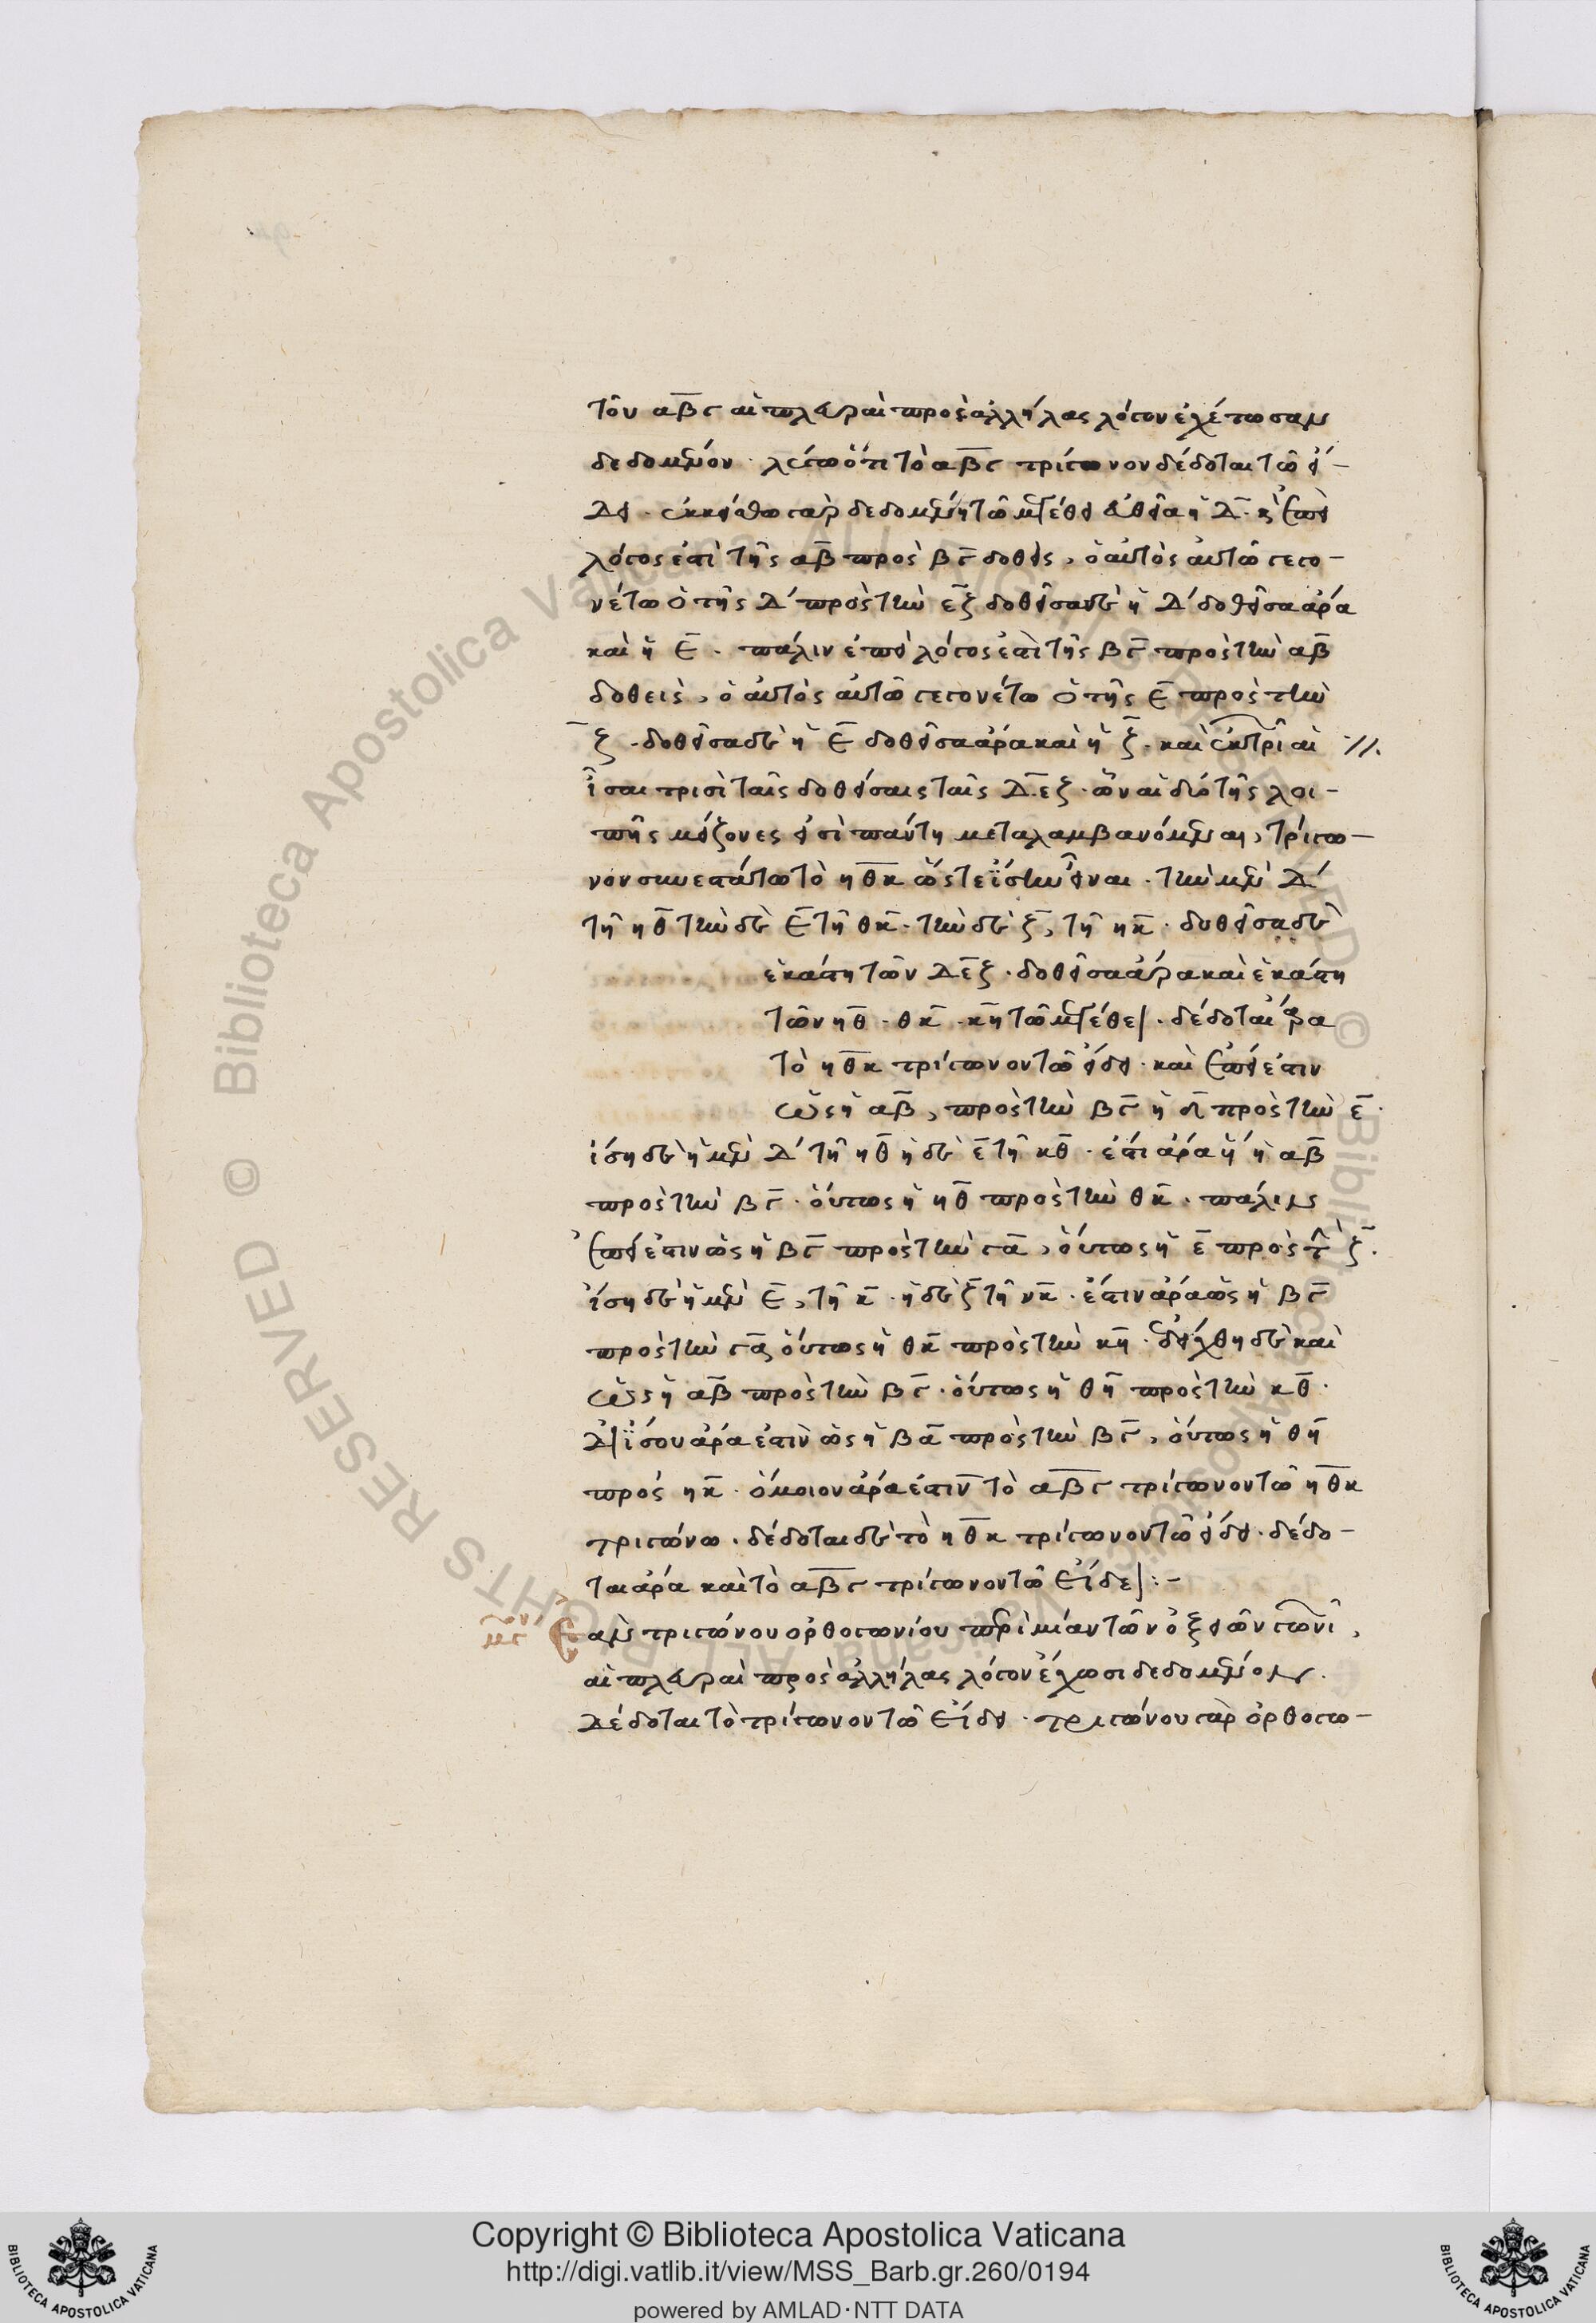 τοῦ αβγ αἱ πλευραὶ πρὸς ἀλλήλας λόγον ἐχέτωσαν
δεδομένον · λέγω ὅτι τὸ αβγ τρίγωνον δέδοται τῶ εἴ–
δει · ἐκκείσθω γὰρ δεδομένη τῶ μεγέθει εὐθεῖα ἡ Δ · κ ἐπεὶ
λόγος ἐστὶ τῆς αβ πρὸς βγ δοθείς, ὁ αὐτὸς αὐτῶ γεγο–
νέτω ὁ τῆς Δ πρὸς τὴν εξ δοθεῖσα δὲ ἡ Δ δοθεῖσα ἄρα
καὶ ἡ Ε · πάλιν ἐπεὶ λόγος ἐστὶ τῆς βγ πρὸς τὴν αβ
δοθεὶς, ὁ αὐτὸς αὐτῶ γεγονέτω ὁ τῆς Ε πρὸς τὴν
ξ · δοθεῖσα δὲ ἡ Ε δοθεῖσα ἄρα καὶ ἡ ξ · καὶ ἐκ τριῶν αἵ //.
εἰσι τρισὶ ταῖς δοθείσαις ταῖς Δεξ · ὧν αἱ δύο τῆς λοι–
πῆς μείζονες εἰσὶ πάντη μεταλαμβανόμεναι, τρίγω–
νον συνεστάτω τὸ ηθκ ὥστε ἴσην εἶναι · τὴν μὲν Δ
τῆ ηθ τὴν δὲ Ε τῆ θκ · τὴν δὲ ξ, τῆ ηκ · δοθεῖσα δὲ
ἑκάστη τῶν Δεξ · δοθεῖσα ἄρα καὶ ἑκάστη
τῶν ηθ · θκ · κη τῶ μεγέθει · δέδοται ἄρα
τὸ ηθκ τρίγωνον τῶ εἴδει · καὶ ἐπεί ἐστιν
ὡς ἡ αβ, πρὸς τὴν βγ ἡ δ πρὸς τὴν ε ·
ἴση δὲ ἡ μὲν Δ τῆ ηθ ἡ δὲ ε τῆ κθ · ἔστι ἄρα ἡ αβ
πρὸς τὴν βγ · οὕτως ἡ ηθ πρὸς τὴν θκ · πάλιν
ἐπεί ἐστιν ὡς ἡ βγ πρὸς τὴν γα, οὕτως ἡ ε πρὸς τὴν ξ.
ἴση δὲ ἡ μὲν Ε, τῆ κ · ἡ δὲ ξ τῆ νκ · ἔστιν ἄρα ὡς ἡ βγ
πρὸς τὴν γα οὕτως ἡ θκ πρὸς τὴν κη · δείχθη δὲ καὶ
ὡς ἡ αβ πρὸς τὴν βγ · οὕτως ἡ θη πρὸς τὴν κθ ·
Δι ἴσου ἄρα ἐστὶν ὡς ἡ βα πρὸς τὴν βγ, οὕτως ἡ θη
πρός ηκ · ὅμοιον ἄρα ἐστὶν τὸ αβγ τρίγωνον τῶ ηθκ
τριγώνω · δέδοται δὲ τὸ ηθκ τρίγωνον τῶ εἴδει · δέδο–
ται ἄρα καὶ τὸ αβγ τρίγωνον τῶ εἴδει :–
Ἐὰν τριγώνου ὀρθογωνίου περὶ μίαν τῶν ὀξειῶν γωνι,
αἱ πλευραὶ πρὸς ἀλλήλας λόγον ἔχωσι δεδομένον.
Δέδοται τὸ τρίγωνον τῶ εἴδει · τριγώνου γὰρ ὀρθογω–
Copyright © Biblioteca Apostolica Vaticana
http://digi.vatlib.it/view/MSS_Barb.gr.260/0194
powered by AMLAD·NTT DATA